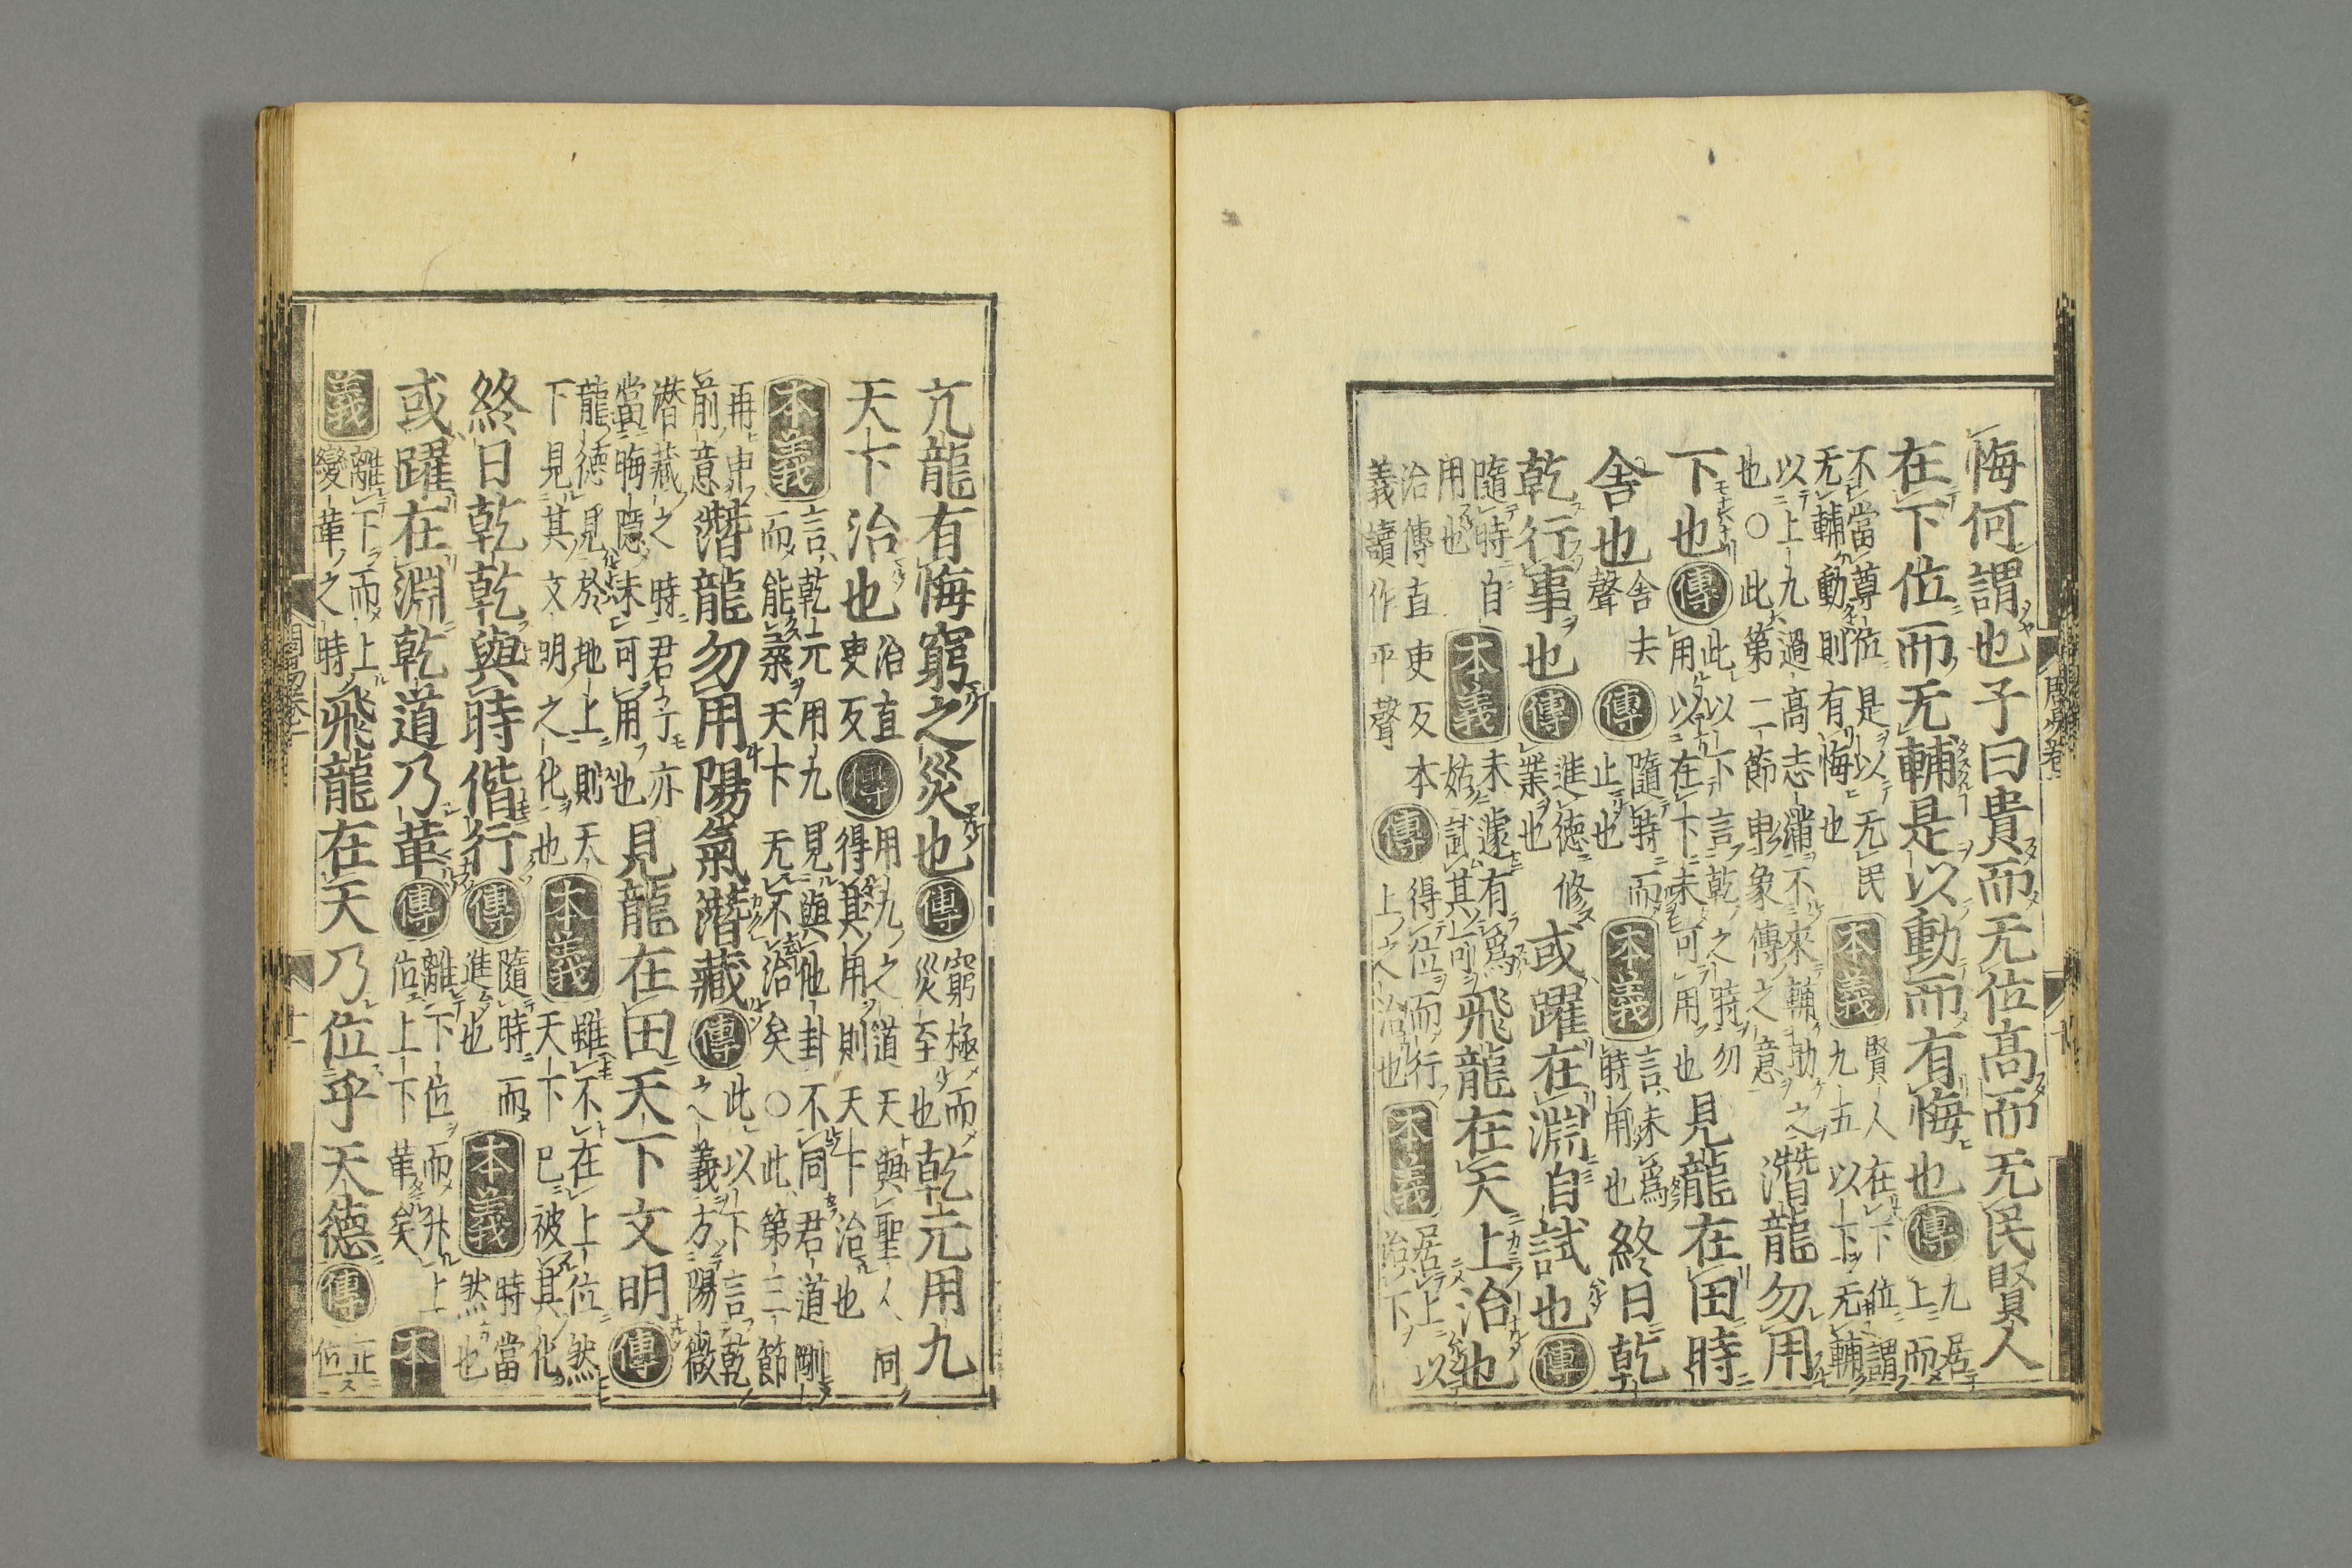 悔何謂也子曰貴而无位高而无民賢人
在下位而无輔是以動而有悔也傳九居上而
不當尊位是以无民无輔動則有悔也本義賢人在下位謂九五以下无輔
以上九過高志滿不來輔助之也○此第二節申象傳之意潛龍勿用
下也傳此以下言乾之時勿用以在下未可用也見龍在田時
舍也舍去聲傳隨時而止也本義言未爲時用也終日乾
乾行事也傳進德修業也或躍在淵自試也傳
隨時自用也本義未遽有爲姑試其可飛龍在天上治也
治直吏反本義讀作平聲傳得位而行上之治也本義居上以治下
亢龍有悔窮之災也傳窮極而災至也乾元用九
天下治也治直吏反傳用九之道天與聖人同得其用則天下治也
本義言乾元用九見與他卦不同君道剛而能柔天下无不治矣○此第三節
再申前意潛龍勿用陽氣潛藏傳此以下言乾之義方陽微
潛藏之時君子亦當晦隱未可用也見龍在田天下文明傳
龍德見於地上則天下見其文明之化也本義雖不在上位然天下已被其化
終日乾乾與時偕行傳隨時而進也本義時當然也
或躍在淵乾道乃革傳離下位而升上位上下革矣本
義離下而上變革之時飛龍在天乃位乎天德傳正位